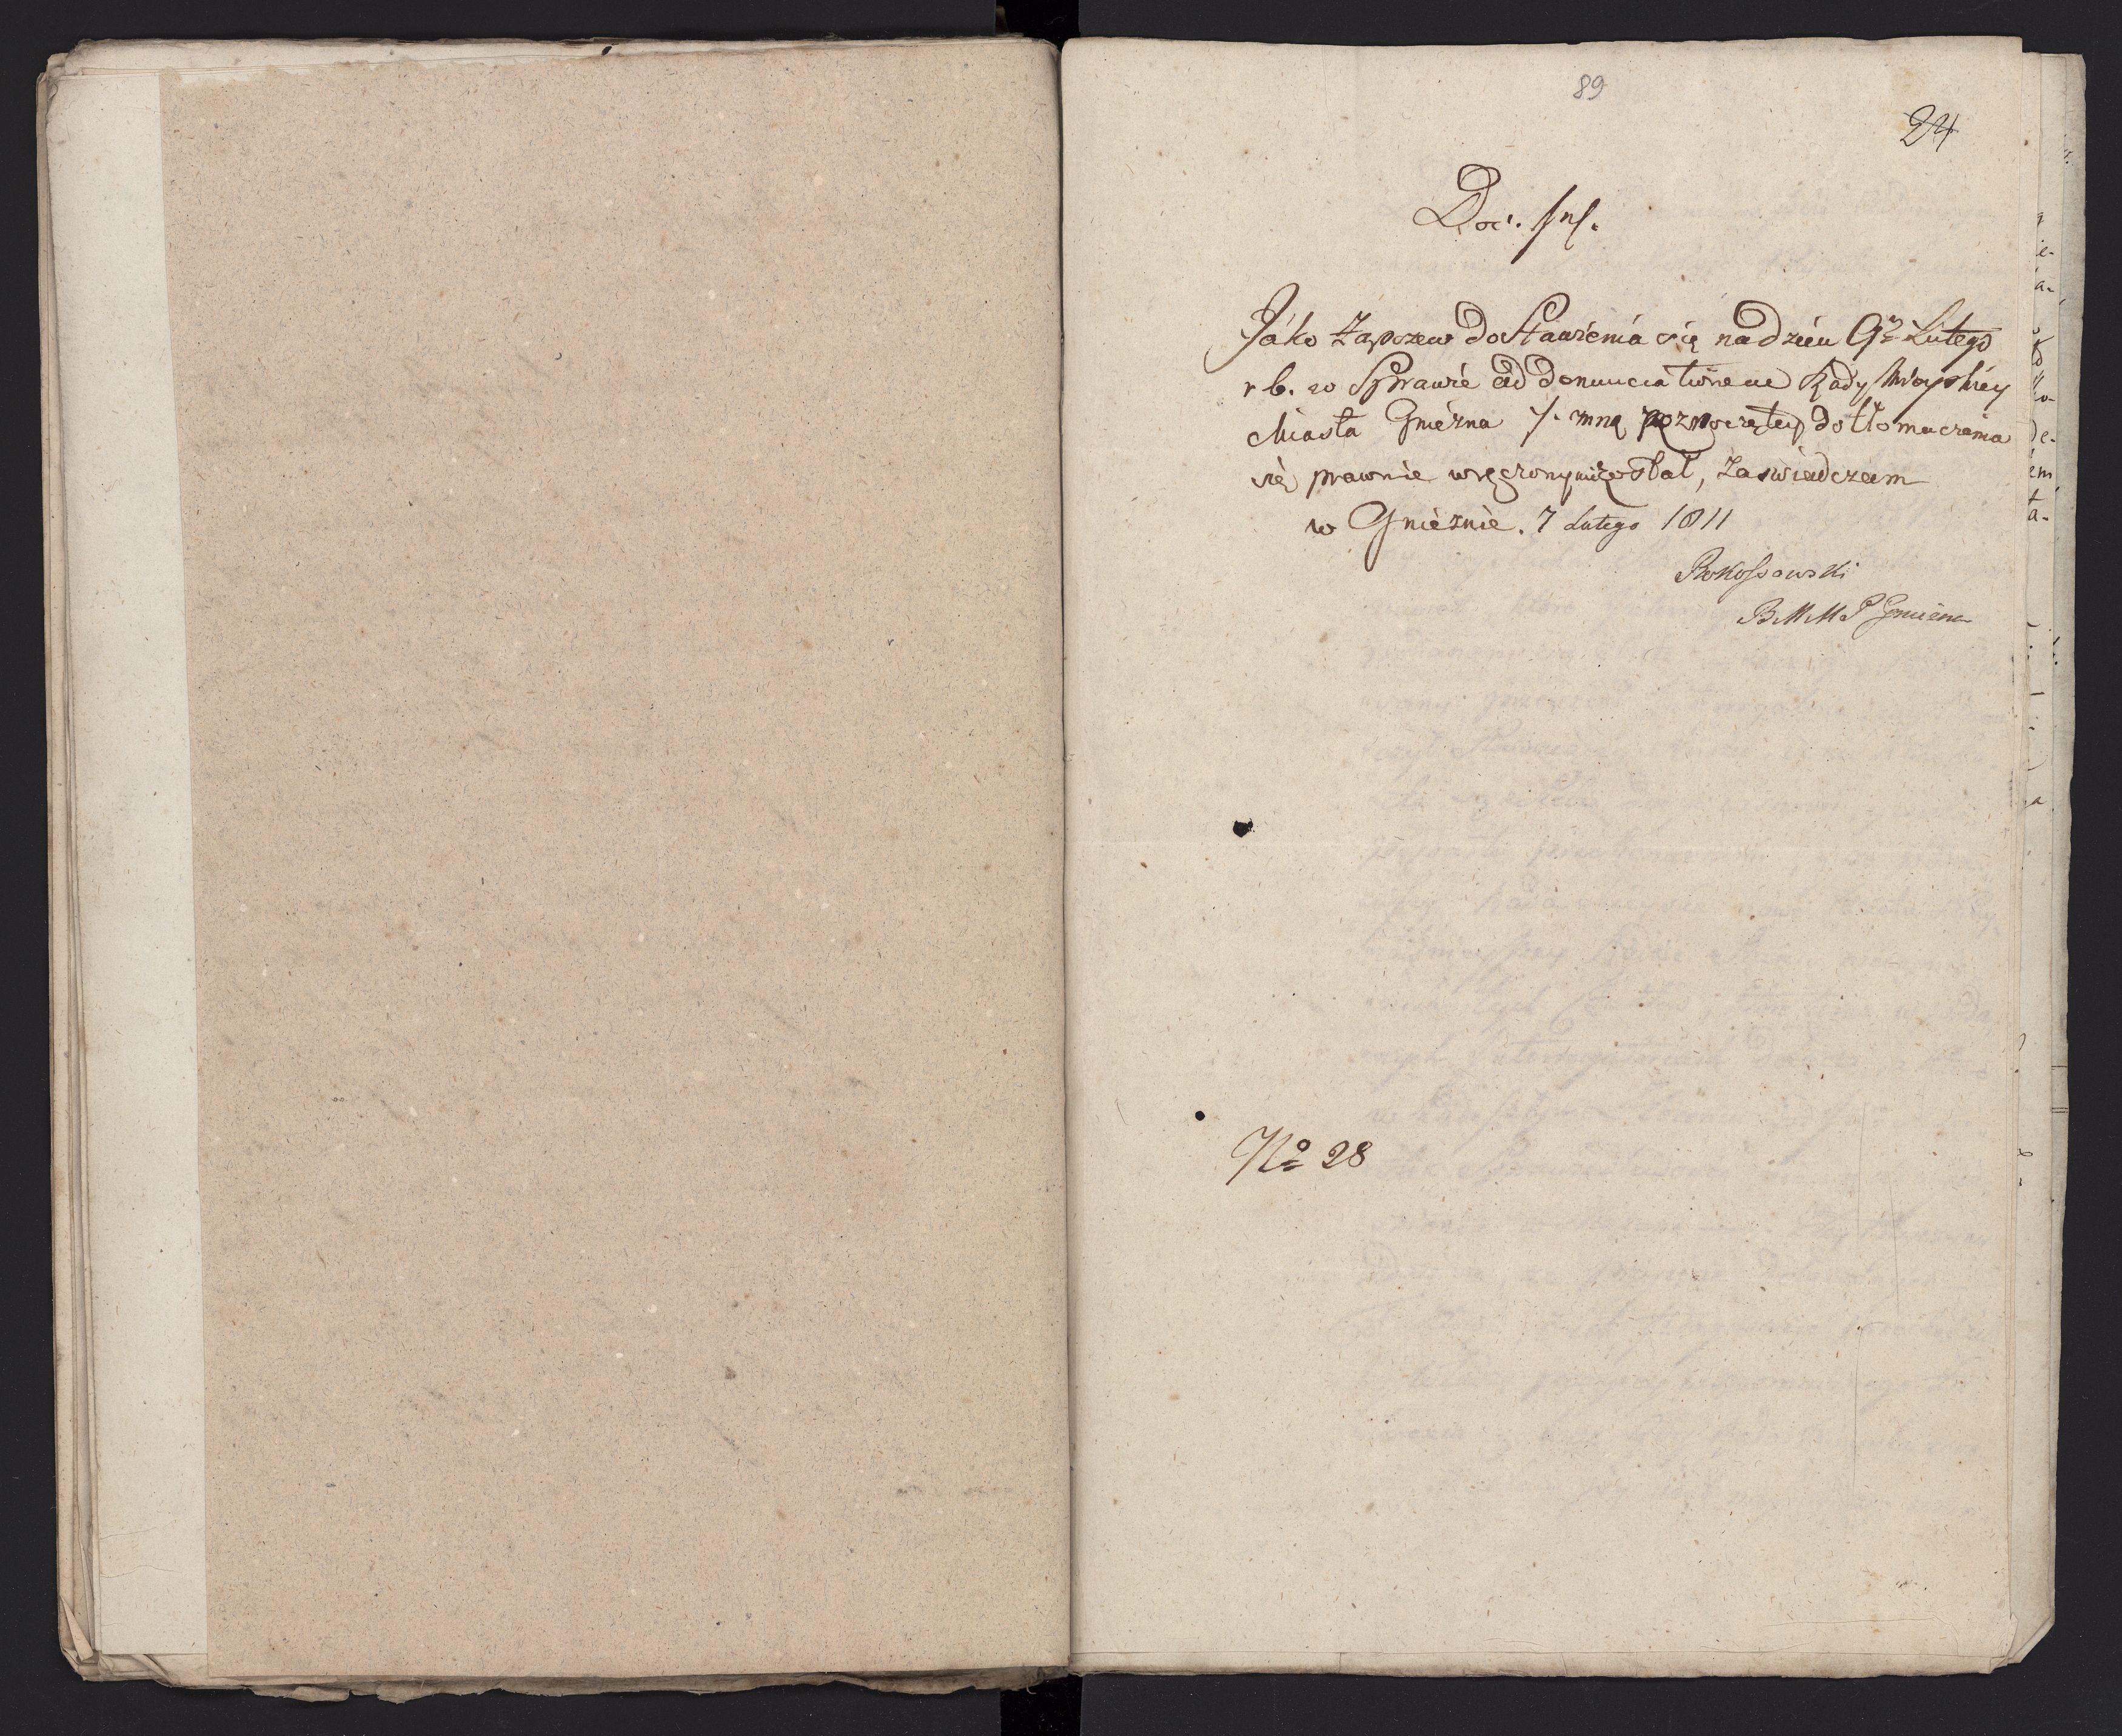 89
24
Doc: Ins.
Jáko Zapozew do Stawienia się na dzień 9º Lutego
r b. w Sprawie ad denunciationem Rady Mieyskiey
Miasta Gniezna /. mną rozpoczętey do tłomaczenia
się prawnie wręczony mi został, Zaswiadczam
w Gnieznie. 7 Lutego 1811
Rokossowski
B M M P Gniezna
No 28